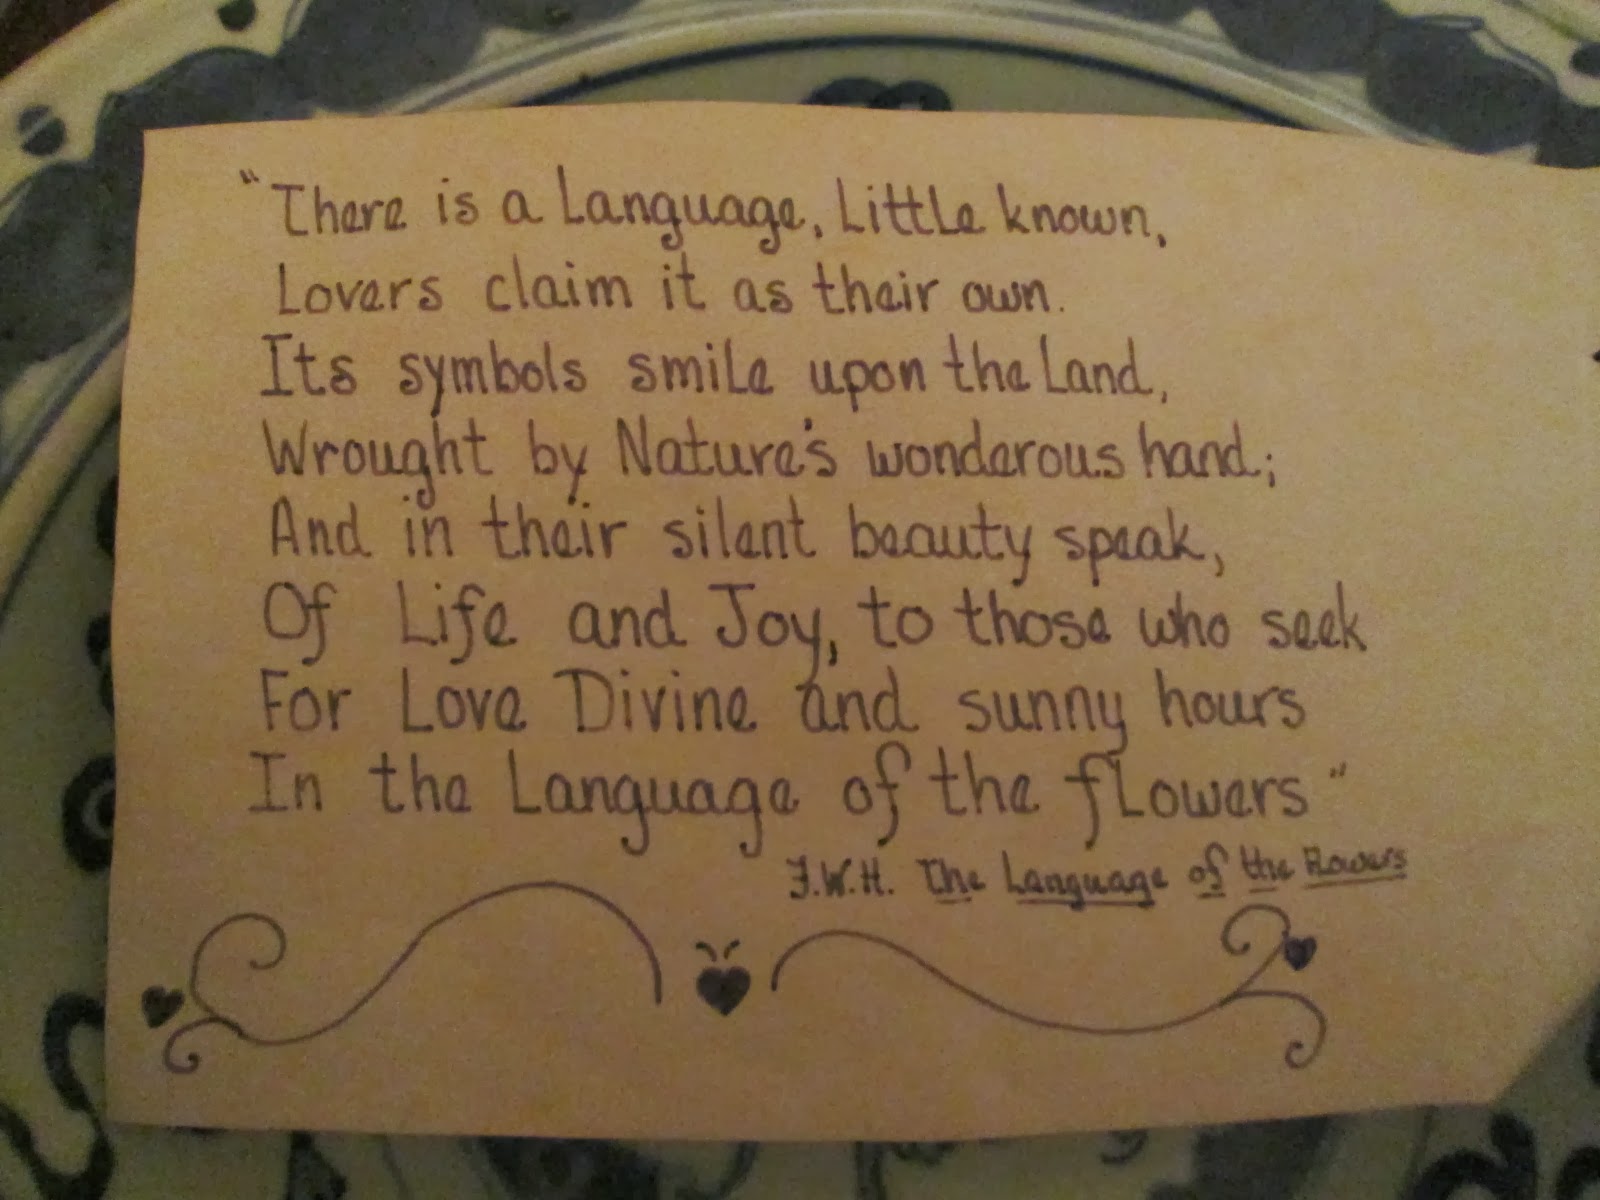 "There is a Language, Little known,
Lovers claim it as their own.
Its symbols smile upon the Land,
Wrought by Nature's wonderous hand;
And in their silent beauty speak,
Of Life and Joy, to those who seek
For Love Divine and sunny hours
In the Language of the fLowers"
F.W.H. The Language of the Flowers